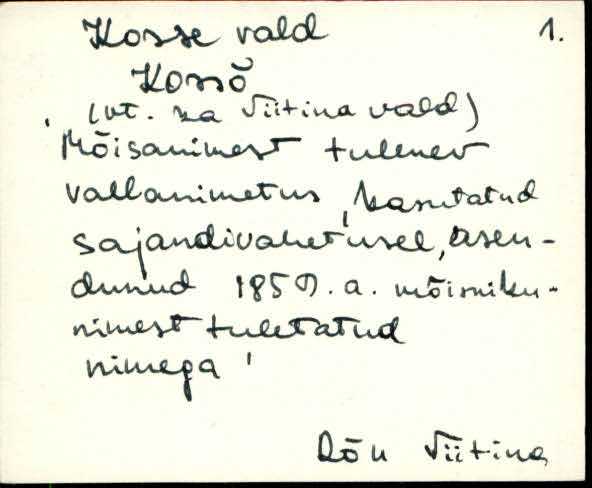 Kosse vald 1.
Kossõ
(vt. ka Viitina vald)
'Mõisanimest tulenev
vallanimetus, kasutatud
sajandivahetusel, asen-
dunud 1850. a. mõisniku-
nimest tuletatud
nimega'
Rõu Viitina